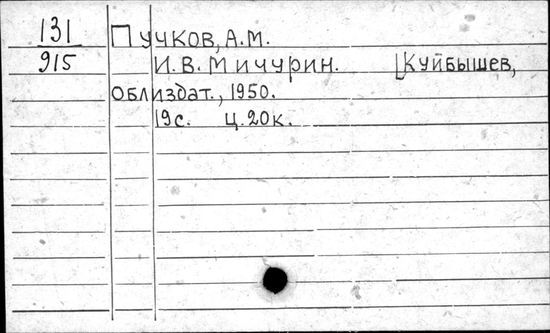 131
915
Пучков, А.М.
И.В.Мичурин. [Куйбышев,
облиздат., 1950.
19с. ц.20к.